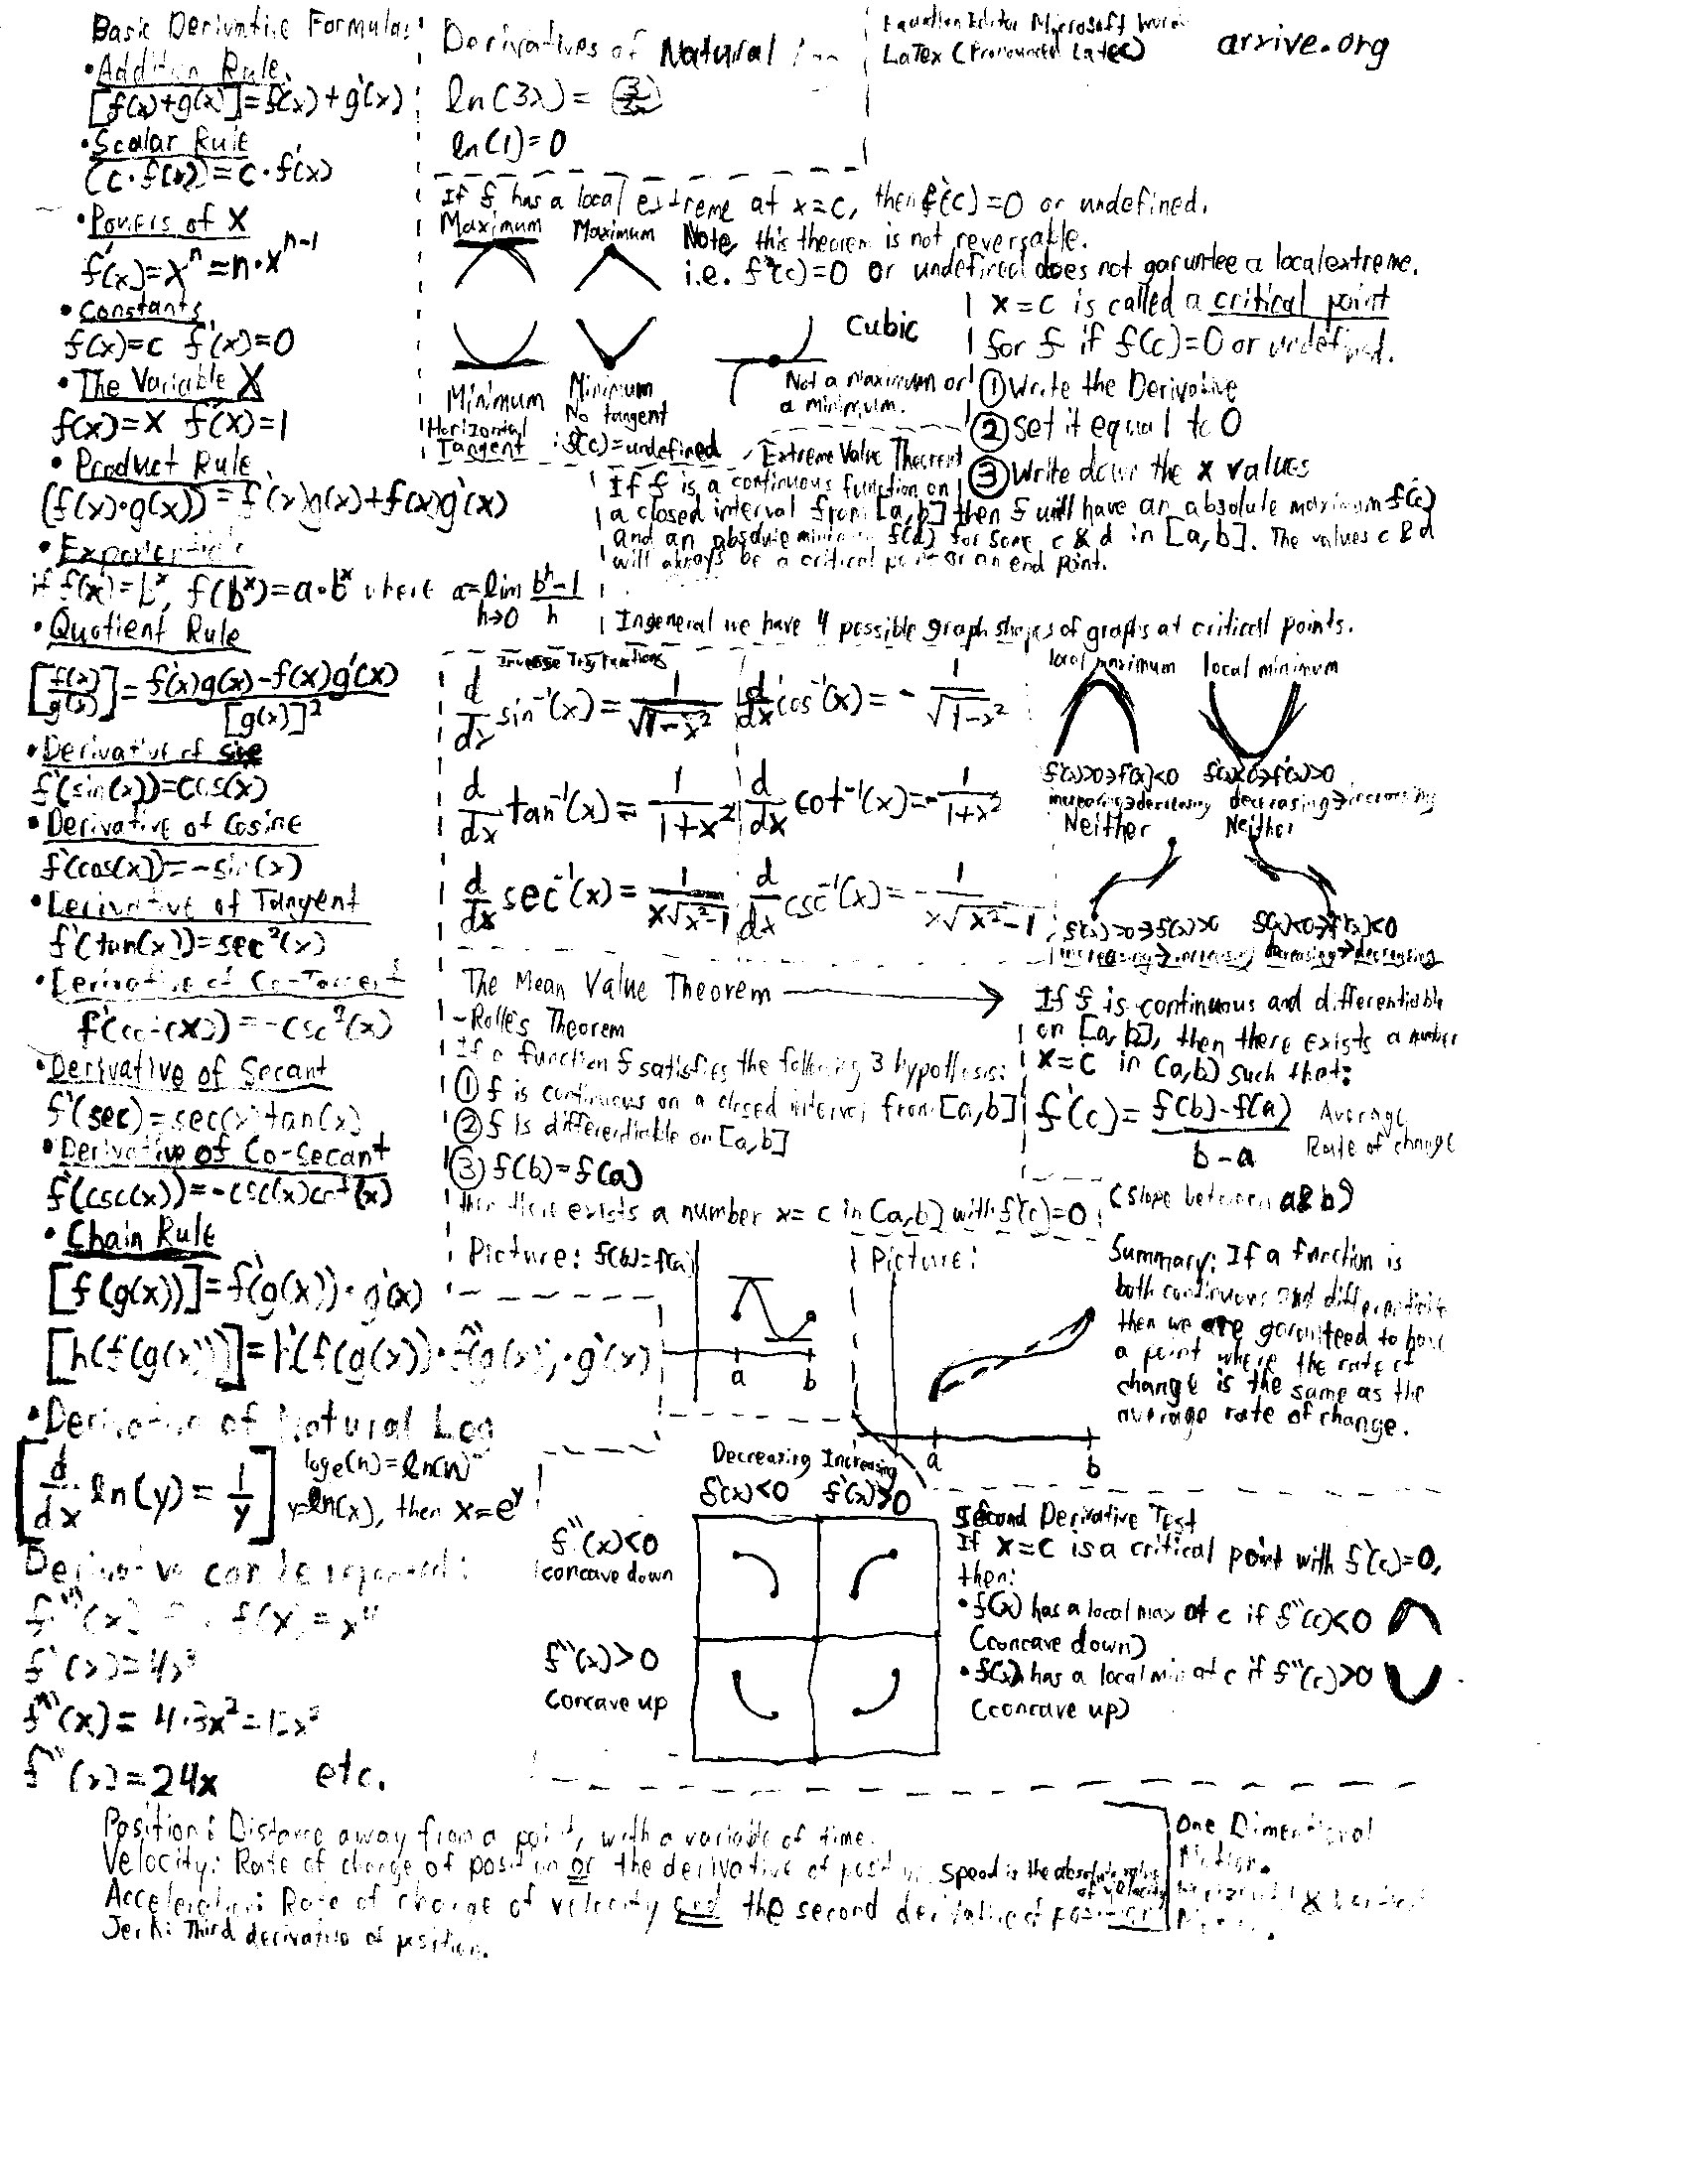 Basic Derivative Formulas
•Addition Rule
[f(x)+g(x)]'=f'(x)+g'(x)
•Scalar Rule
(c·f(x))'=c·f'(x)
•Powers of X
f'(x)=xⁿ=n·xⁿ⁻¹
•Constants
f(x)=c f'(x)=0
•The Variable X
f(x)=x f'(x)=1
•Product Rule
(f(x)·g(x))'=f'(x)g(x)+f(x)g'(x)
•Exponentials
if f(x)=bˣ, f'(bˣ)=a·bˣ where a=lim h→0 (bʰ-1)/h
•Quotient Rule
[f(x)/g(x)]'=(f'(x)g(x)-f(x)g'(x))/[g(x)]²
•Derivative of sine
f'(sin(x))=cos(x)
•Derivative of Cosine
f'(cos(x))=-sin(x)
•Derivative of Tangent
f'(tan(x))=sec²(x)
•Derivative of Co-Tangent
f'(cot(x))=-csc²(x)
•Derivative of Secant
f'(sec)=sec(x)tan(x)
•Derivative of Co-Secant
f'(csc(x))=-csc(x)cot(x)
•Chain Rule
[f(g(x))]'=f'(g(x))·g'(x)
[h(f(g(x)))]'=h'(f(g(x))·f'(g(x))·g'(x)
•Derivative of Natural Log
[d/dx ln(y)=1/y]
logₑ(n)=ln(n)
y=ln(x), then x=eʸ
Derivative can be repeated:
f(x)=x⁴
f'(x)=4x³
f''(x)=4·3x²=12x²
f'''(x)=24x etc.
Derivatives of Natural
ln(3x)=3/3x
ln(1)=0
Equation Editor Microsoft Word
LaTex (Pronounced Latec)
arxive.org
If f has a local extreme at x=c, then f'(c)=0 or undefined.
Maximum Maximum
Note, this theorem is not reversable.
i.e. f'(c)=0 or undefined does not garuntee a local extreme.
Minimum
Horizontal
Tangent
Minimum
No tangent
f'(c)=undefined
Cubic
Not a maximum or
a minimum.
x=c is called a critical point
for f if f'(c)=0 or undefined.
①Write the Derivative
②Set it equal to 0
③Write down the x values
Extreme Value Theorem
If f is a continuous function on
a closed interval from [a,b] then f will have an absolute maximum f(c)
and an absolute minimum f(d) for some c & d in [a,b]. The values c & d
will always be a critical point or an end point.
In general we have 4 possible graph shapes of graphs at criticall points.
Inverse Trig Functions
d/dx sin⁻¹(x)=1/√(1-x²)
d/dx cos⁻¹(x)=-1/√(1-x²)
d/dx tan⁻¹(x)=1/(1+x²)
d/dx cot⁻¹(x)=-1/(1+x²)
d/dx sec⁻¹(x)=1/(x√(x²-1))
d/dx csc⁻¹(x)=-1/(x√(x²-1))
local maximum local minimum
f'(x)>0→f'(x)<0 f'(x)<0→f'(x)>0
increasing→decreasing decreasing→increasing
Neither Neither
f'(x)>0→f'(x)>0 f'(x)<0→f'(x)<0
increasing→increasing decreasing→decreasing
The Mean Value Theorem
-Rolle's Theorem
If a function f satisfies the following 3 hypothesis:
①f is continuous on a closed interval from [a,b]
②f is differentiable on [a,b]
③f(b)=f(a)
then there exists a number x=c in (a,b) with f'(c)=0
If f is continuous and differentiable
on [a,b], then there exists a number
x=c in (a,b) such that:
f'(c)=(f(b)-f(a))/(b-a)
Average
Rate of change
(slope between a&b)
Picture: f(b)=f(a)
a b
Picture:
a b
Summary: If a function is
both continuous and differentiable
then we are garunteed to have
a point where the rate of
change is the same as the
average rate of change.
Decreasing Increasing
f'(x)<0 f'(x)>0
f''(x)<0
concave down
f''(x)>0
concave up
Second Derivative Test
If x=c is a critical point with f'(c)=0,
then:
•f(x) has a local max at c if f''(c)<0
(concave down)
•f(x) has a local min at c if f''(c)>0
(concave up)
Position: Distance away from a point, with a variable of time.
Velocity: Rate of change of position or the derivative of position. Speed is the absolute value
of velocity
Acceleration: Rate of change of velocity and the second derivative of position
Jerk: Third derivative of position.
One Dimentional
Motion.